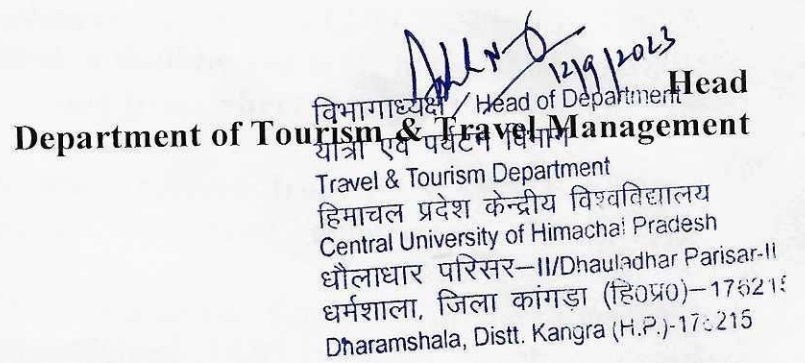 12/9/2023
Head
विभागाध्यक्ष / Head of Department
Department of Tourism & Travel Management
यात्रा एवं पर्यटन विभाग
Travel & Tourism Department
हिमाचल प्रदेश केन्द्रीय विश्वविद्यालय
Central University of Himachal Pradesh
धौलाधार परिसर–II/Dhauladhar Parisar-II
धर्मशाला, जिला कांगड़ा (हि0प्र0)–176215
Dharamshala, Distt. Kangra (H.P.)-176215